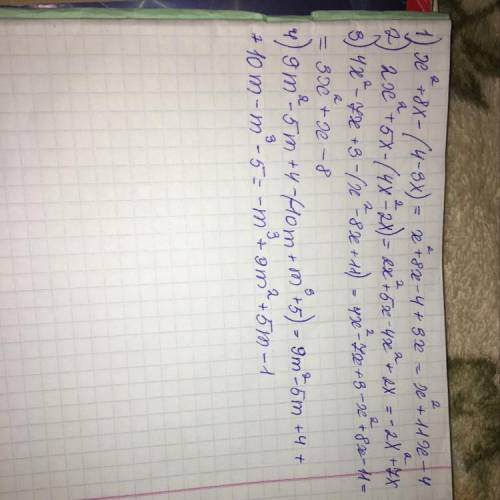 1) x² + 8x - (4 - 3x) = x² + 8x - 4 + 3x = x² + 11x - 4
2) 2x² + 5x - (4x² - 2x) = 2x² + 5x - 4x² + 2x = -2x² + 7x
3) 4x² - 7x + 3 - (x² - 8x + 11) = 4x² - 7x + 3 - x² + 8x - 11 =
= 3x² + x - 8
4) 9m² - 5m + 4 - (-10m + m³ + 5) = 9m² - 5m + 4 +
+ 10m - m³ - 5 = -m³ + 9m² + 5m - 1